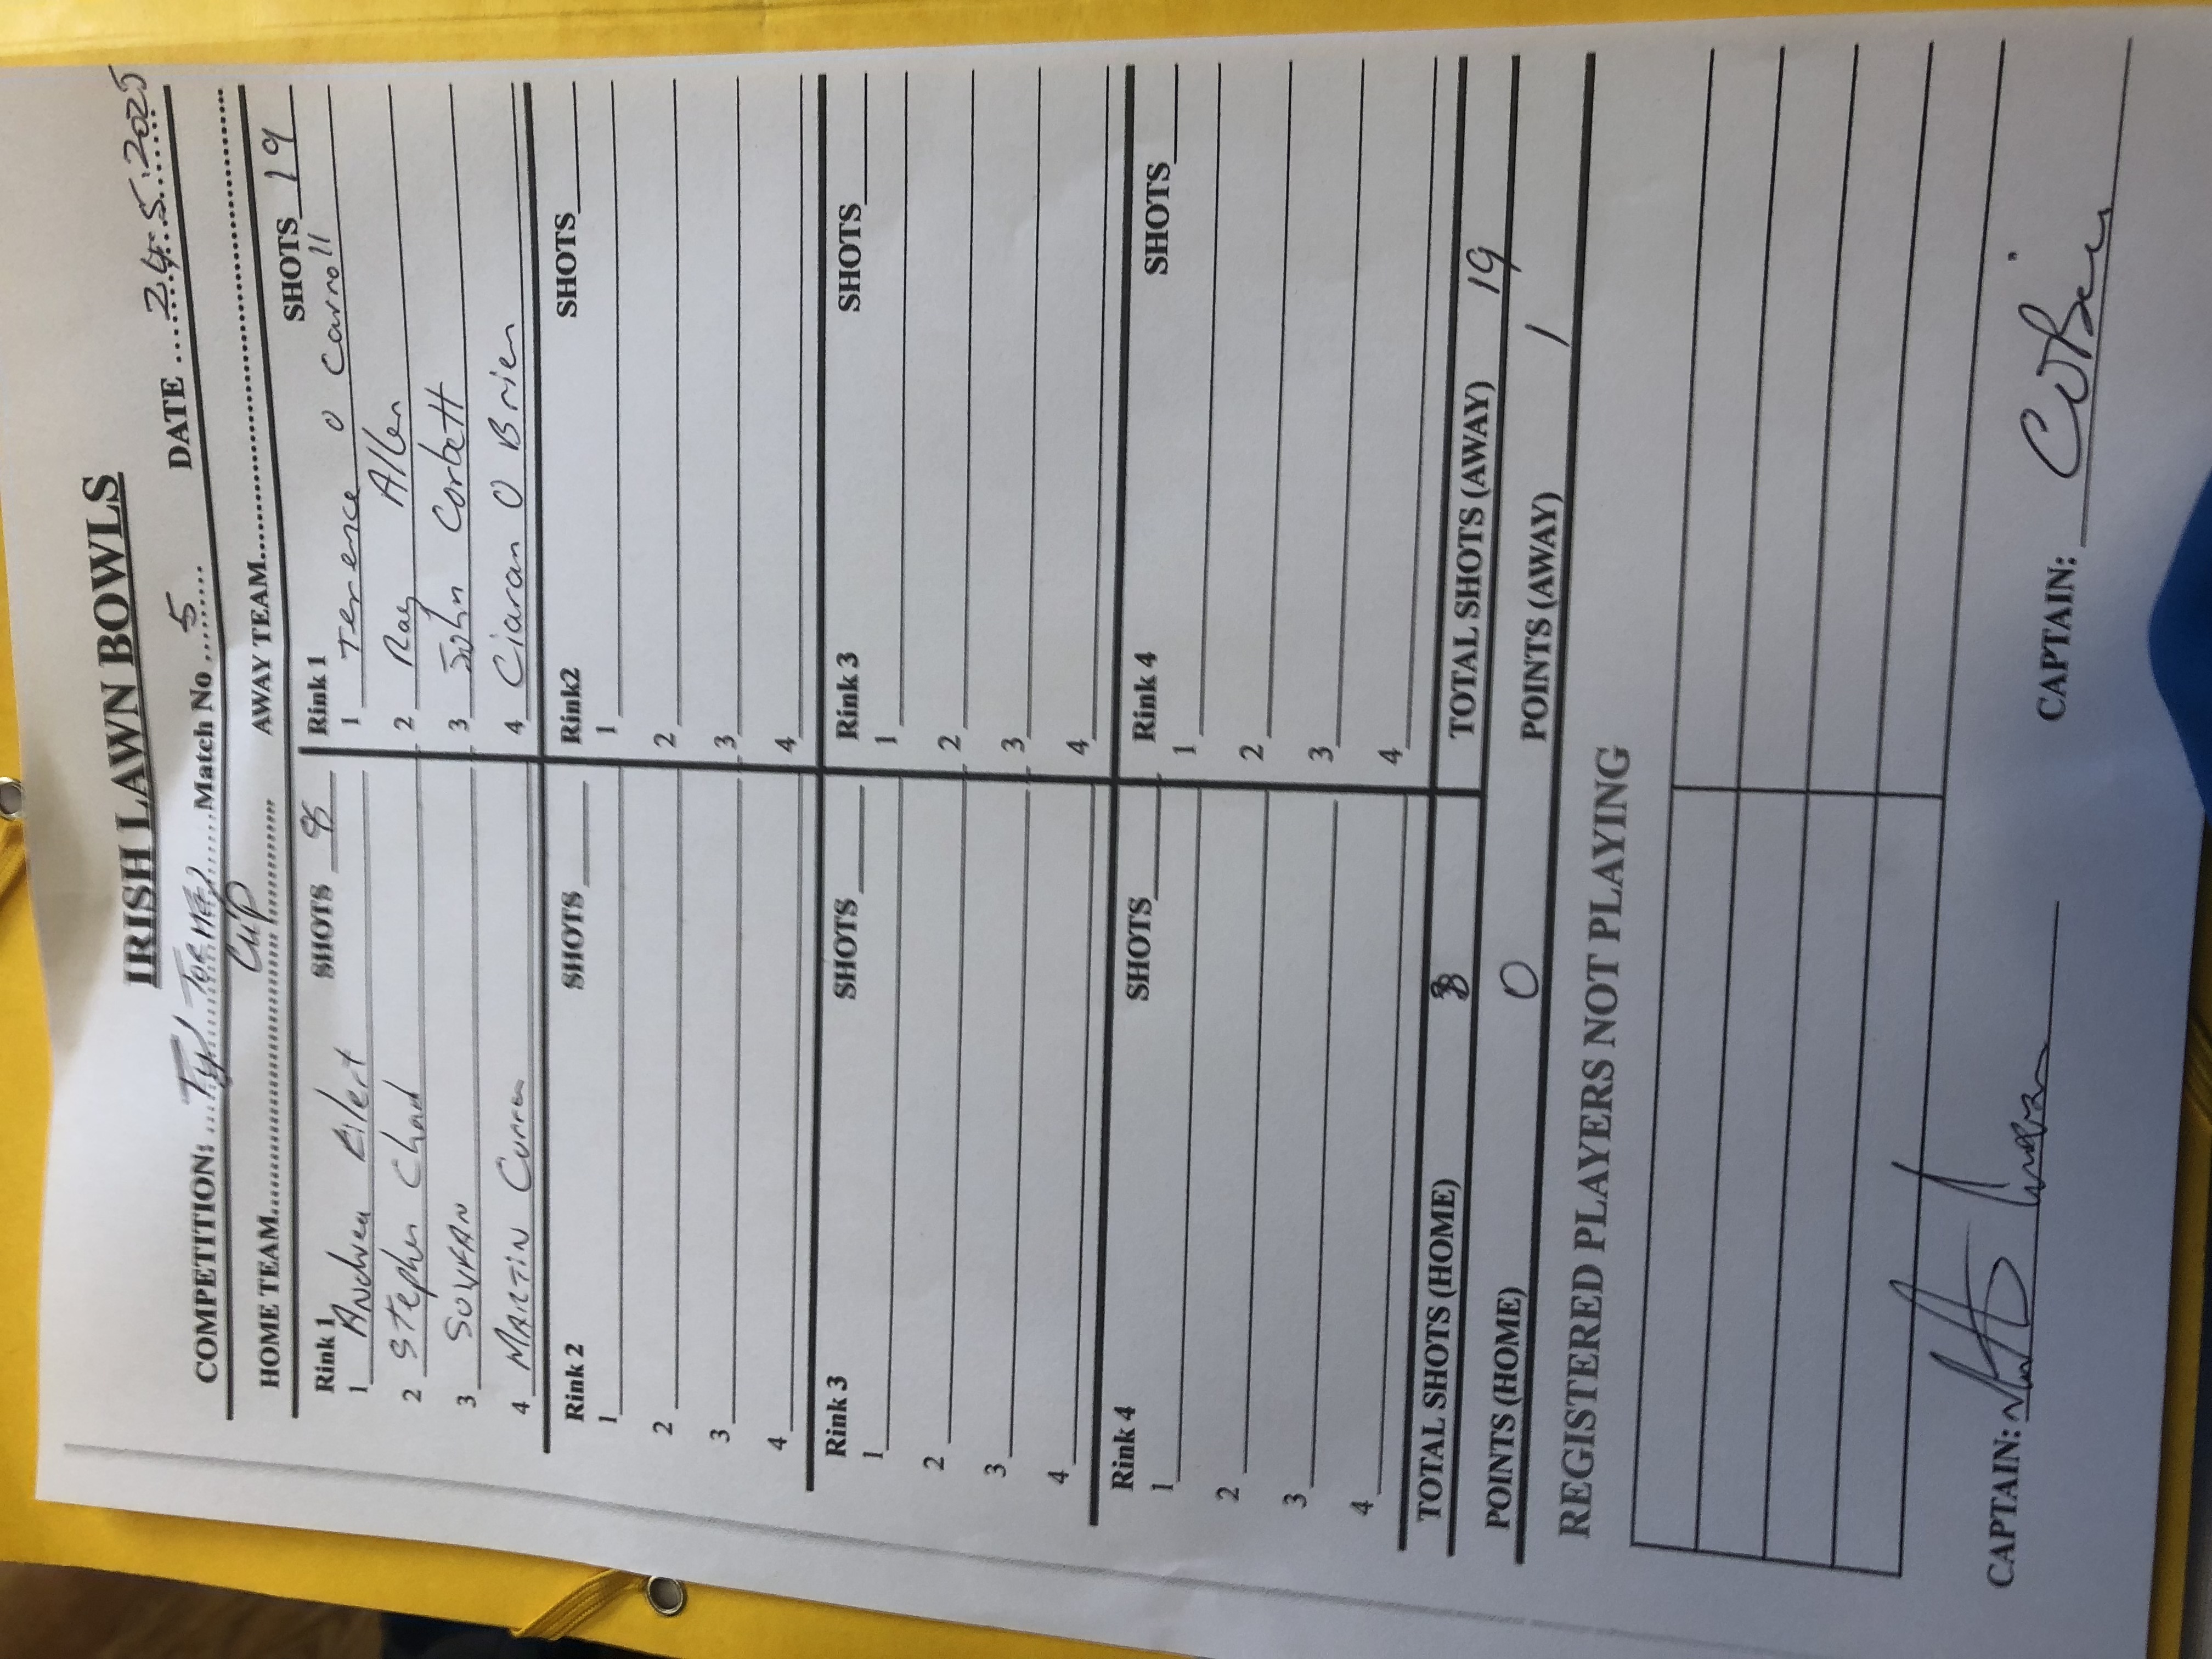 IRISH LAWN BOWLS
COMPETITION: Match No 5 DATE 24.5.2025
Cup
HOME TEAM AWAY TEAM
Rink 1 SHOTS 8 Rink 1 SHOTS 19
1 Andrew Eilert 1 Terence O Carroll
2 Stephen Chad 2 Ray Allen
3 3 John Corbett
4 MARTIN Curran 4 Ciaran O Brien
Rink 2 SHOTS Rink2 SHOTS
1 1
2 2
3 3
4 4
Rink 3 SHOTS Rink 3 SHOTS
1 1
2 2
3 3
4 4
Rink 4 SHOTS Rink 4 SHOTS
1 1
2 2
3 3
4 4
TOTAL SHOTS (HOME) 8 TOTAL SHOTS (AWAY) 19
POINTS (HOME) 0 POINTS (AWAY) 1
REGISTERED PLAYERS NOT PLAYING
CAPTAIN: CAPTAIN: